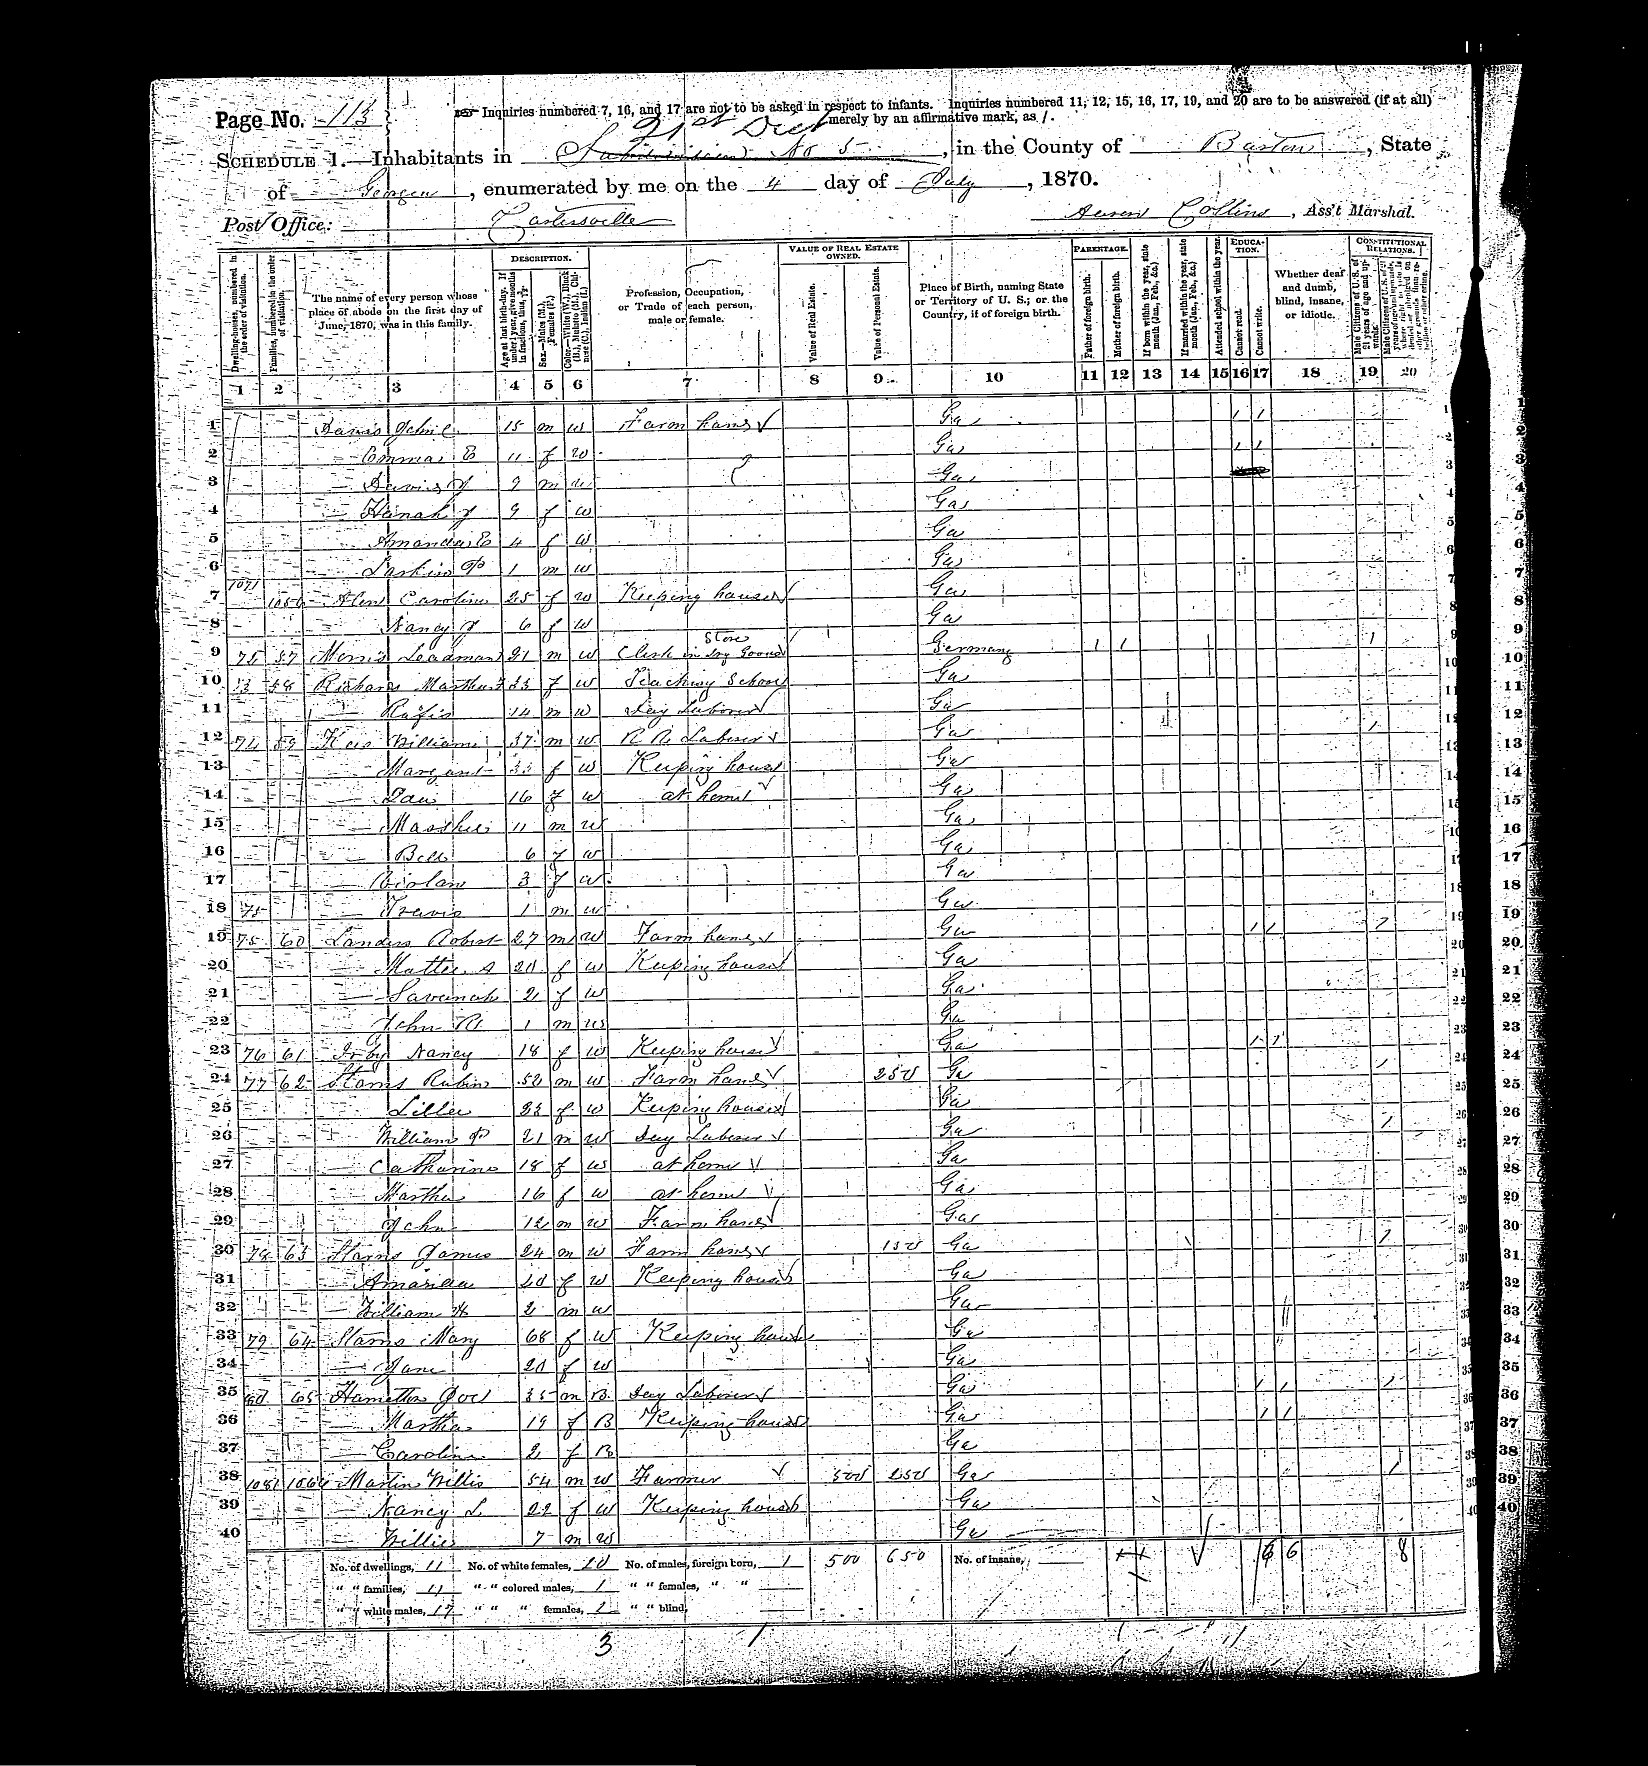 Page No. 113
Inquiries numbered 7, 16, and 17 are not to be asked in respect to infants. Inquiries numbered 11, 12, 15, 16, 17, 19, and 20 are to be answered (if at all)
merely by an affirmative mark, as /.
21st Dist
SCHEDULE 1.—Inhabitants in Subdivision No 5, in the County of Bartow, State
of Georgia, enumerated by me on the 4 day of July, 1870.
Post Office: Cartersville
Aaron Collins, Ass't Marshal.
DESCRIPTION.
VALUE OF REAL ESTATE OWNED.
PARENTAGE.
EDUCATION.
CONSTITUTIONAL RELATIONS.
Dwelling-houses, numbered in the order of visitation.
Families, numbered in the order of visitation.
The name of every person whose place of abode on the first day of June, 1870, was in this family.
Age at last birth-day. If under 1 year, give months in fractions, thus, 3/12
Sex.—Males (M.), Females (F.)
Color.—White (W.), Black (B.), Mulatto (M.), Chinese (C.), Indian (I.)
Profession, Occupation, or Trade of each person, male or female.
Value of Real Estate.
Value of Personal Estate.
Place of Birth, naming State or Territory of U. S.; or the Country, if of foreign birth.
Father of foreign birth.
Mother of foreign birth.
If born within the year, state month (Jan., Feb., &c.)
If married within the year, state month (Jan., Feb., &c.)
Attended school within the year.
Cannot read.
Cannot write.
Whether deaf and dumb, blind, insane, or idiotic.
Male Citizens of U.S. of 21 years of age and upwards.
1 2 3 4 5 6 7 8 9 10 11 12 13 14 15 16 17 18 19 20
1 Davis John C 15 m w Farm hand Ga / /
2 — Emma E 11 f w Ga / /
3 — 9 m w Ga
4 — Hanah J 9 f w Ga
5 — Amanda E 4 f w Ga
6 — Larkin P 1 m w Ga
7 1071 1056 Caroline 25 f w Keeping house Ga
8 — Nancy J 6 f w Ga
9 57 Morris 21 m w Clerk in Dry Goods Store Germany / / /
10 73 58 Martha 33 f w Teaching School Ga
11 — 14 m w Day Laborer Ga
12 74 59 William 37 m w R R Laborer Ga /
13 — Margaret 33 f w Keeping house Ga
14 — 16 f w at home Ga
15 — 11 m w Ga
16 — Bell 6 f w Ga
17 — 3 f w Ga
18 75 — Travis 1 m w Ga
19 75 60 Landers Robert 27 m w Farm hand Ga / / /
20 — Mattie A 20 f w Keeping house Ga
21 — Savanah 2 f w Ga
22 — John R 1 m w Ga
23 76 61 Irby Nancy 18 f w Keeping house Ga / /
24 77 62 Starns Rubin 52 m w Farm hand 250 Ga /
25 — Liller 23 f w Keeping house Ga
26 — William P 21 m w Day Laborer Ga /
27 — Catharine 18 f w at home Ga
28 — Martha 16 f w at home Ga
29 — John 12 m w Farm hand Ga
30 78 63 Starns James 24 m w Farm hand 150 Ga /
31 — Amanda 20 f w Keeping house Ga
32 — William H 2 m w Ga
33 79 64 Starns Mary 68 f w Keeping house Ga
34 — Jane 20 f w Ga
35 80 65 Joel 35 m B Day Laborer Ga / / /
36 — Martha 19 f B Keeping house Ga / /
37 — Caroline 2 f B Ga
38 1081 1066 Martin Willis 54 m w Farmer 500 250 Ga /
39 — Nancy L 22 f w Keeping house Ga
40 — Willie 7 m w Ga
No. of dwellings, 11 No. of white females, 20 No. of males, foreign born, 1 500 650 No. of insane, 6 6 8
" " families, 11 " " colored males, 1 " " females, " "
" " white males, 17 " " " females, 2 " " blind,
3